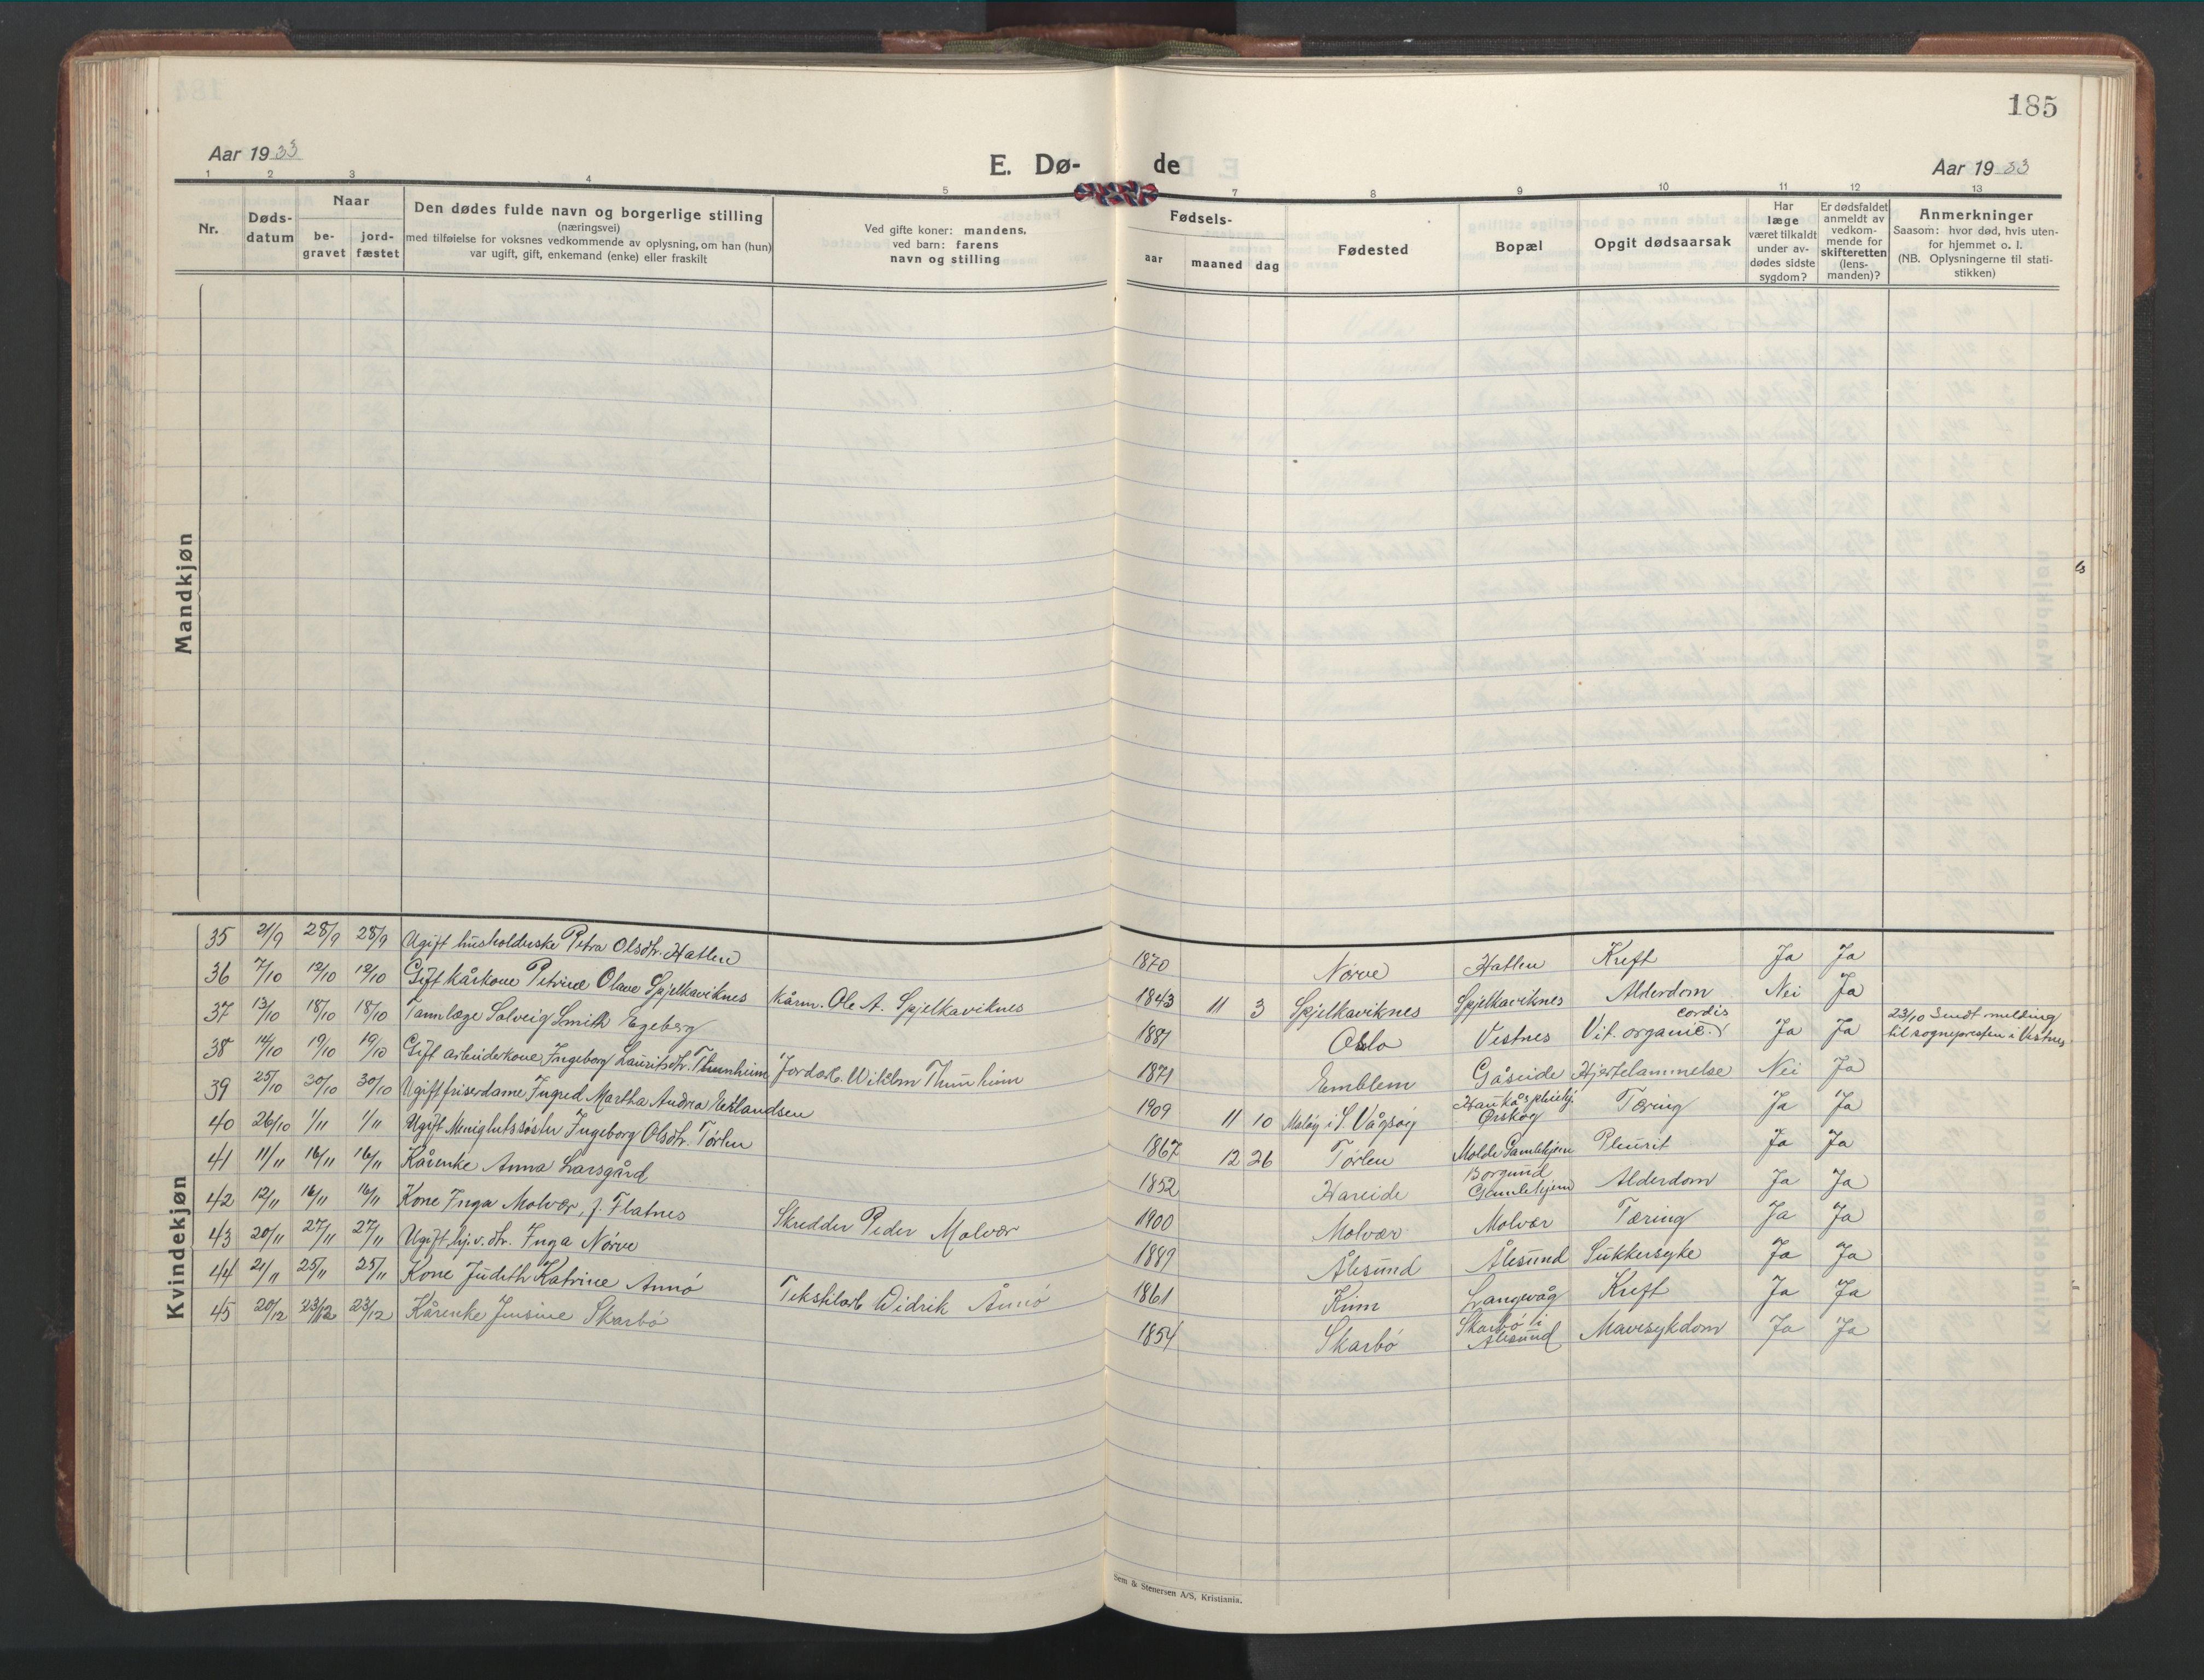 185
Aar 1933
E. Dø-
de
Aar 1933
1 2 3 4 5 7 8 9 10 11 12 13
Nr.
Døds-
datum
Naar
be-
gravet
jord-
fæstet
Den dødes fulde navn og borgerlige stilling
(næringsvei)
med tilføielse for voksnes vedkommende av oplysning, om han (hun)
var ugift, gift, enkemand (enke) eller fraskilt
Ved gifte koner: mandens,
ved barn: farens
navn og stilling
Fødsels-
aar maaned dag
Fødested
Bopæl
Opgit dødsaarsak
Har
læge
været tilkaldt
under av-
dødes sidste
sygdom?
Er dødsfaldet
anmeldt av
vedkom-
mende for
skifteretten
(lens-
manden)?
Anmerkninger
Saasom: hvor død, hvis uten-
for hjemmet o. l.
(NB. Oplysningerne til stati-
stikken)
Mandkjøn
Kvindekjøn
35 21/9 28/9 28/9 Ugift husholderske Petra Olsdtr. Hatlen 1870 Nørve Hatlen Kreft Ja Ja
36 7/10 12/10 12/10 Gift kårkone Petrine Olave Spjelkaviknes Kårm. Ole A. Spjelkaviknes 1843 11 3 Spjelkaviknes Spjelkaviknes Alderdom Nei Ja
37 13/10 18/10 18/10 Tannlæge Solveig Smith Egeberg 1887 Oslo Vestnes Vit. organic. cordis Ja Ja 23/10 Sendt melding
til sognepresten i Vestnes
38 14/10 19/10 19/10 Gift arbeiderkone Ingeborg Lauritsdtr. Thunheim Jordarb. Wilhlm Thunheim 1871 Emblem Gåseide Hjertelammelse Nei Ja
39 25/10 30/10 30/10 Ugift friserdame Ingred Martha Andrea Erlandsen 1909 11 10 Måløy i S. Vågsøy Haukås pleiehj.
Ørskog Tæring Ja Ja
40 26/10 1/11 1/11 Ugift Menighetssøster Ingeborg Olsdtr. Tørlen 1867 12 26 Tørlen Molde Gamlehjem Pleurit Ja Ja
41 11/11 16/11 16/11 Kårenke Anna Larsgård 1852 Hareide Borgund
Gamlehjem Alderdom Ja Ja
42 12/11 16/11 16/11 Kone Inga Molvær, f. Flatnes Skredder Peder Molvær 1900 Molvær Molvær Tæring Ja Ja
43 20/11 27/11 27/11 Ugift hj.v. dtr. Inga Nørve 1889 Ålesund Ålesund Sukkersyke Ja Ja
44 21/11 25/11 25/11 Kone Judith Katrine Annø Tekstilarb Widrik Annø 1861 Langevåg Kreft Ja Ja
45 20/12 23/12 23/12 Kårenke Jensine Skarbø 1854 Skarbø Skarbø i
Ålesund Mavesykdom Ja Ja
Sem & Stenersen A/S, Kristiania.